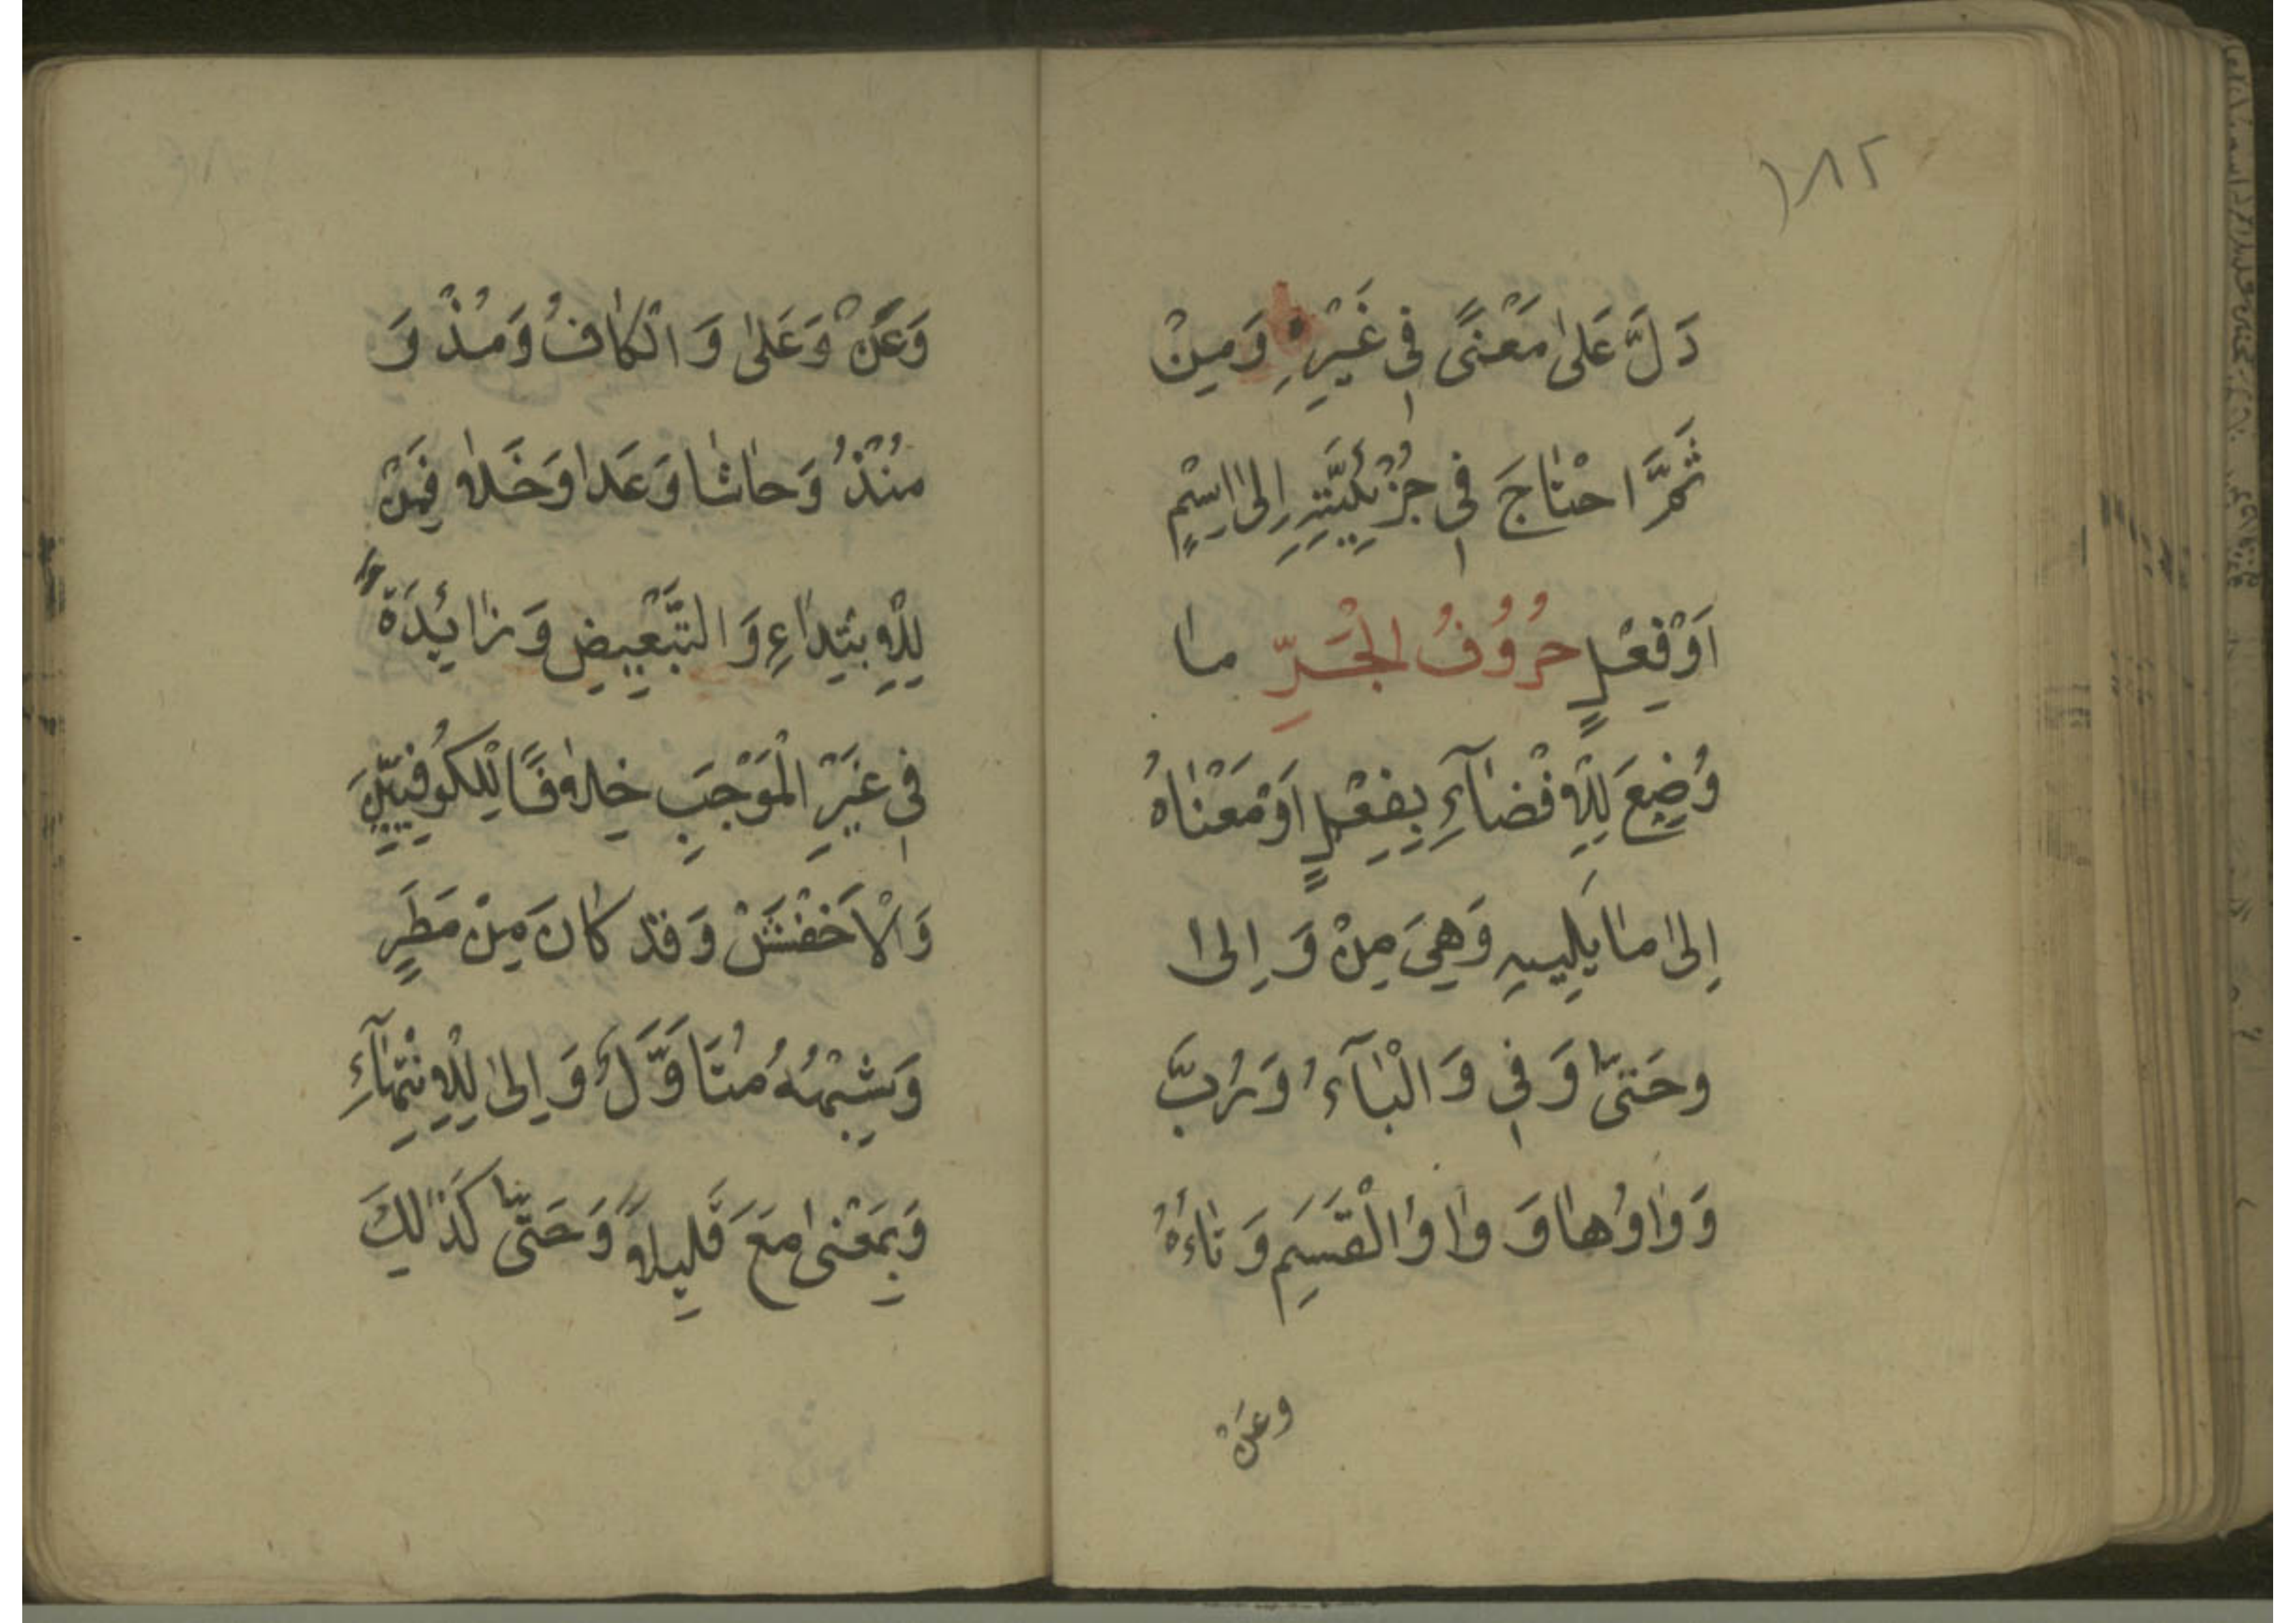 ١٨٢
دَلَّ عَلىٰ مَعْنًى فِي غَيْرِهِ وَمِنْ
ثَمَّ احْتاجَ فِي جُزْئِيَّتِهِ اِلىٰ اِسْمٍ
اَوْفِعْلٍ حُرُوْفُ الْجَرِّ ما
وُضِعَ لِلْاِفْضآءِ بِفِعْلٍ اَوْمَعْناهُ
اِلىٰ مايَلِيهِ وَهِيَ مِنْ وَاِلىٰ
وحَتىّٰ وَفِي وَالْبآءُ وَرُبَّ
وَواوُها وَواوُالْقَسَمِ وَتاءُهُ
وعَنْ
وَعَنْ وَعَلىٰ وَالْكافُ وَمُذْ وَ
مُنْذُ وَحاشا وَعَدا وَخَلا فَمِنْ
لِلْاِبْتِداءِ وَالتَّبْعِيضِ وَزائِدَةً
فِي غَيْرِ الْمَوْجَبِ خِلافًا لِلْكُوفِيّيِنَ
وَالْاَخْفَشْ وَقَدْ كانَ مِنْ مَطَرٍ
وَشِبْهُهُ مُتَاَوَّلٌ وَاِلىٰ لِلْاِنْتِهآءِ
وَبِمَعْنىٰ مَعَ قَلِيلاً وَحَتىّٰ كَذٰلِكَ